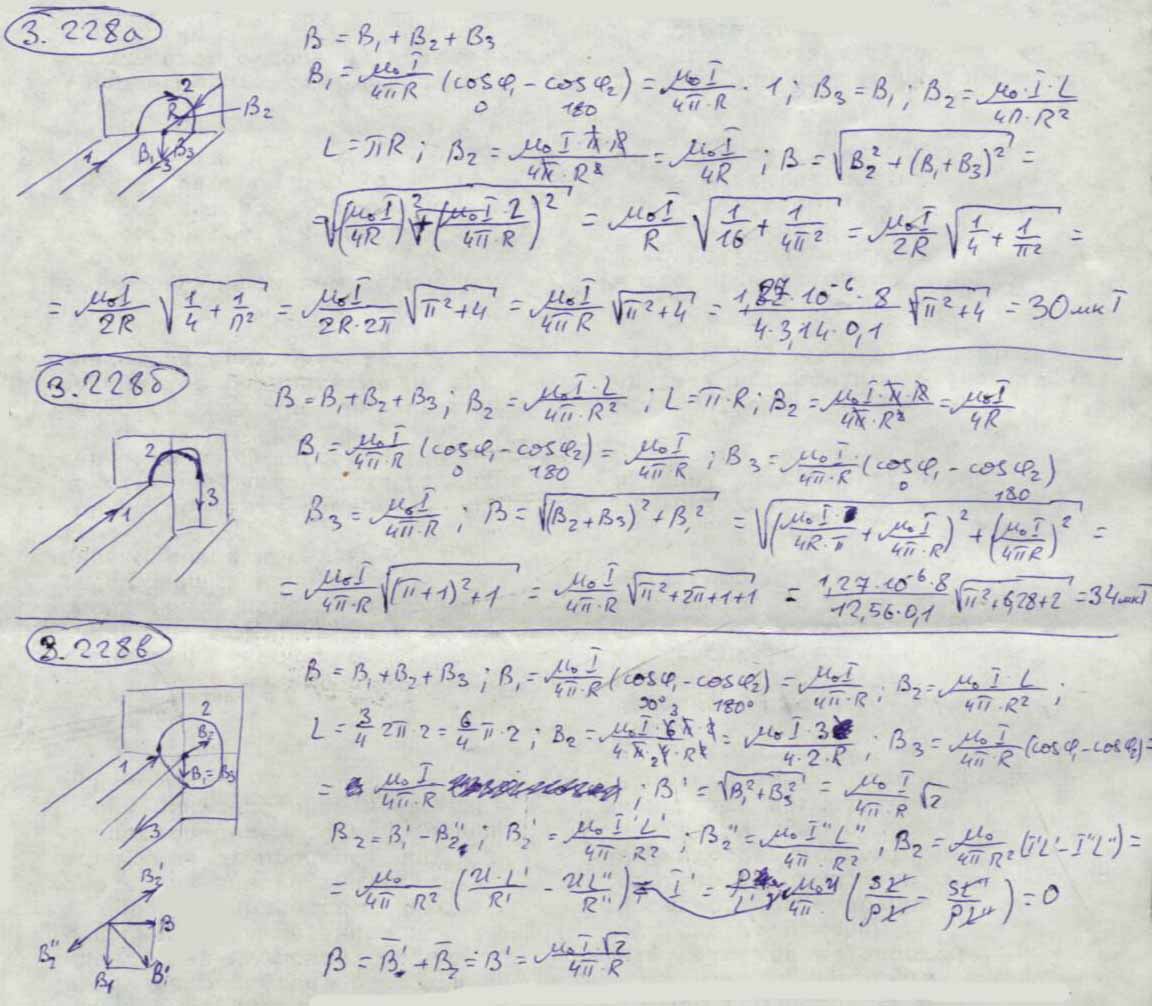 3.228а
B = B₁ + B₂ + B₃
B₁ = μ₀I/4πR (cosφ₁ - cosφ₂) = μ₀I/4π·R · 1; B₃ = B₁; B₂ = μ₀·I·L/4π·R²
0 180
L = πR; B₂ = μ₀I·π·R/4π·R² = μ₀I/4R; B = √(B₂² + (B₁+B₃)²) =
= √((μ₀I/4R)² + (μ₀I·2/4π·R)²) = μ₀I/R √(1/16 + 1/4π²) = μ₀I/2R √(1/4 + 1/π²) =
= μ₀I/2R √(1/4 + 1/π²) = μ₀I/2R·2π √(π²+4) = μ₀I/4πR √(π²+4) = 1,27·10⁻⁶·8/4·3,14·0,1 √(π²+4) = 30мкТ
2
R
B₂
1
B₁
B₃
3
3.228б
B = B₁ + B₂ + B₃; B₂ = μ₀I·L/4π·R²; L = π·R; B₂ = μ₀I·π·R/4π·R² = μ₀I/4R
B₁ = μ₀I/4π·R (cosφ₁ - cosφ₂) = μ₀I/4π·R; B₃ = μ₀I/4π·R (cosφ₁ - cosφ₂)
0 180 0 180
B₃ = μ₀I/4π·R; B = √((B₂+B₃)² + B₁²) = √((μ₀I·/4R·π + μ₀I/4π·R)² + (μ₀I/4πR)²) =
= μ₀I/4π·R √((π+1)²+1) = μ₀I/4π·R √(π²+2π+1+1) = 1,27·10⁻⁶·8/12,56·0,1 √(π²+6,28+2) = 34мкТ
2
3
1
3.228в
B = B₁ + B₂ + B₃; B₁ = μ₀I/4π·R (cosφ₁ - cosφ₂) = μ₀I/4π·R; B₂ = μ₀I·L/4π·R²;
90° 180°
L = 3/4 2π·2 = 6/4 π·2; B₂ = = μ₀I·3/4·2·R; B₃ = μ₀I/4π·R (cosφ₁ - cosφ₂) =
= μ₀I/4π·R; B' = √(B₁²+B₃²) = μ₀I/4π·R √2
B₂ = B₂' - B₂''; B₂' = μ₀I'L'/4π·R²; B₂'' = μ₀I''L''/4π·R²; B₂ = μ₀/4πR² (I'L' - I''L'') =
= μ₀/4π·R² (U·L'/R' - UL''/R''); I' = μ₀U/4π (SL'/ρL' - SL''/ρL'') = 0
B = B̄' + B̄₂ = B' = μ₀I·√2/4π·R
2
B₂
1
B₁=B₃
3
B₂'
B
B₂''
B₁
B'